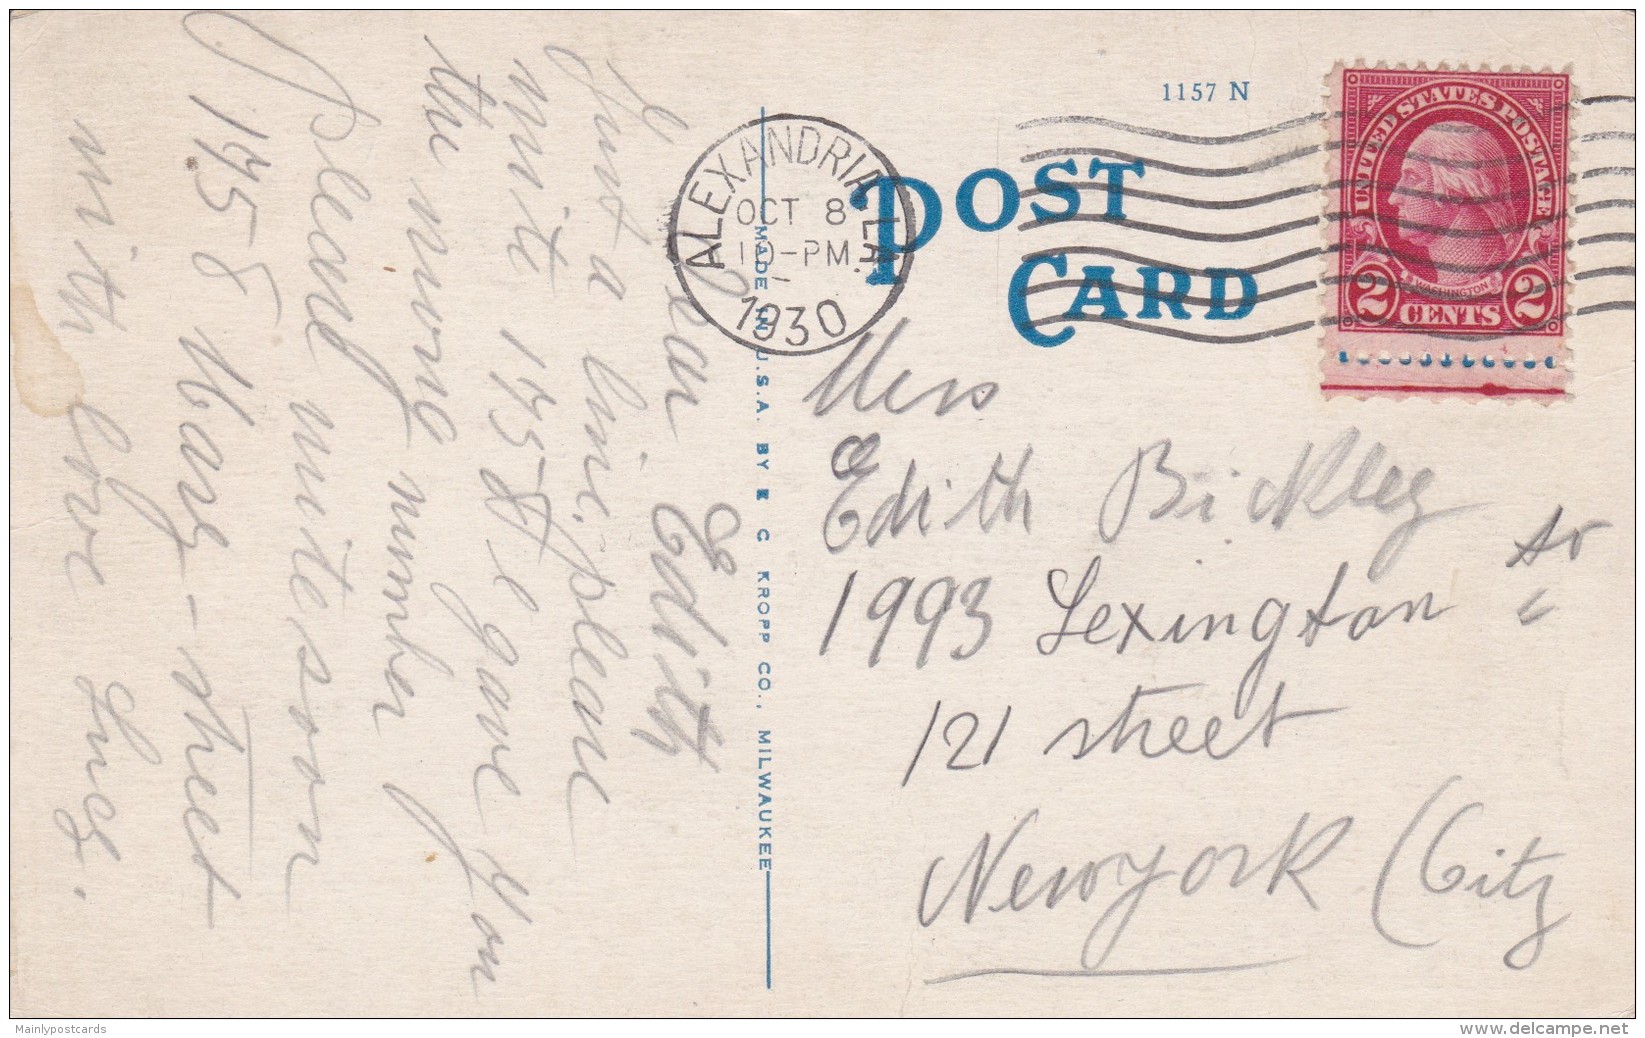 1157 N
POST
CARD
ALEXANDRIA, LA.
OCT 8
10-PM
1930
UNITED STATES POSTAGE
WASHINGTON
2 CENTS 2
MADE IN U.S.A. BY E C KROPP CO., MILWAUKEE
Dear Edith
Just a line, please
write 1758 I gave you
the wrong number
please write soon
1758 Mary-street
with love Inez.
Miss
Edith Bickley
1993 Lexington
121 street
New york (City
Mainlypostcards
www.delcampe.net